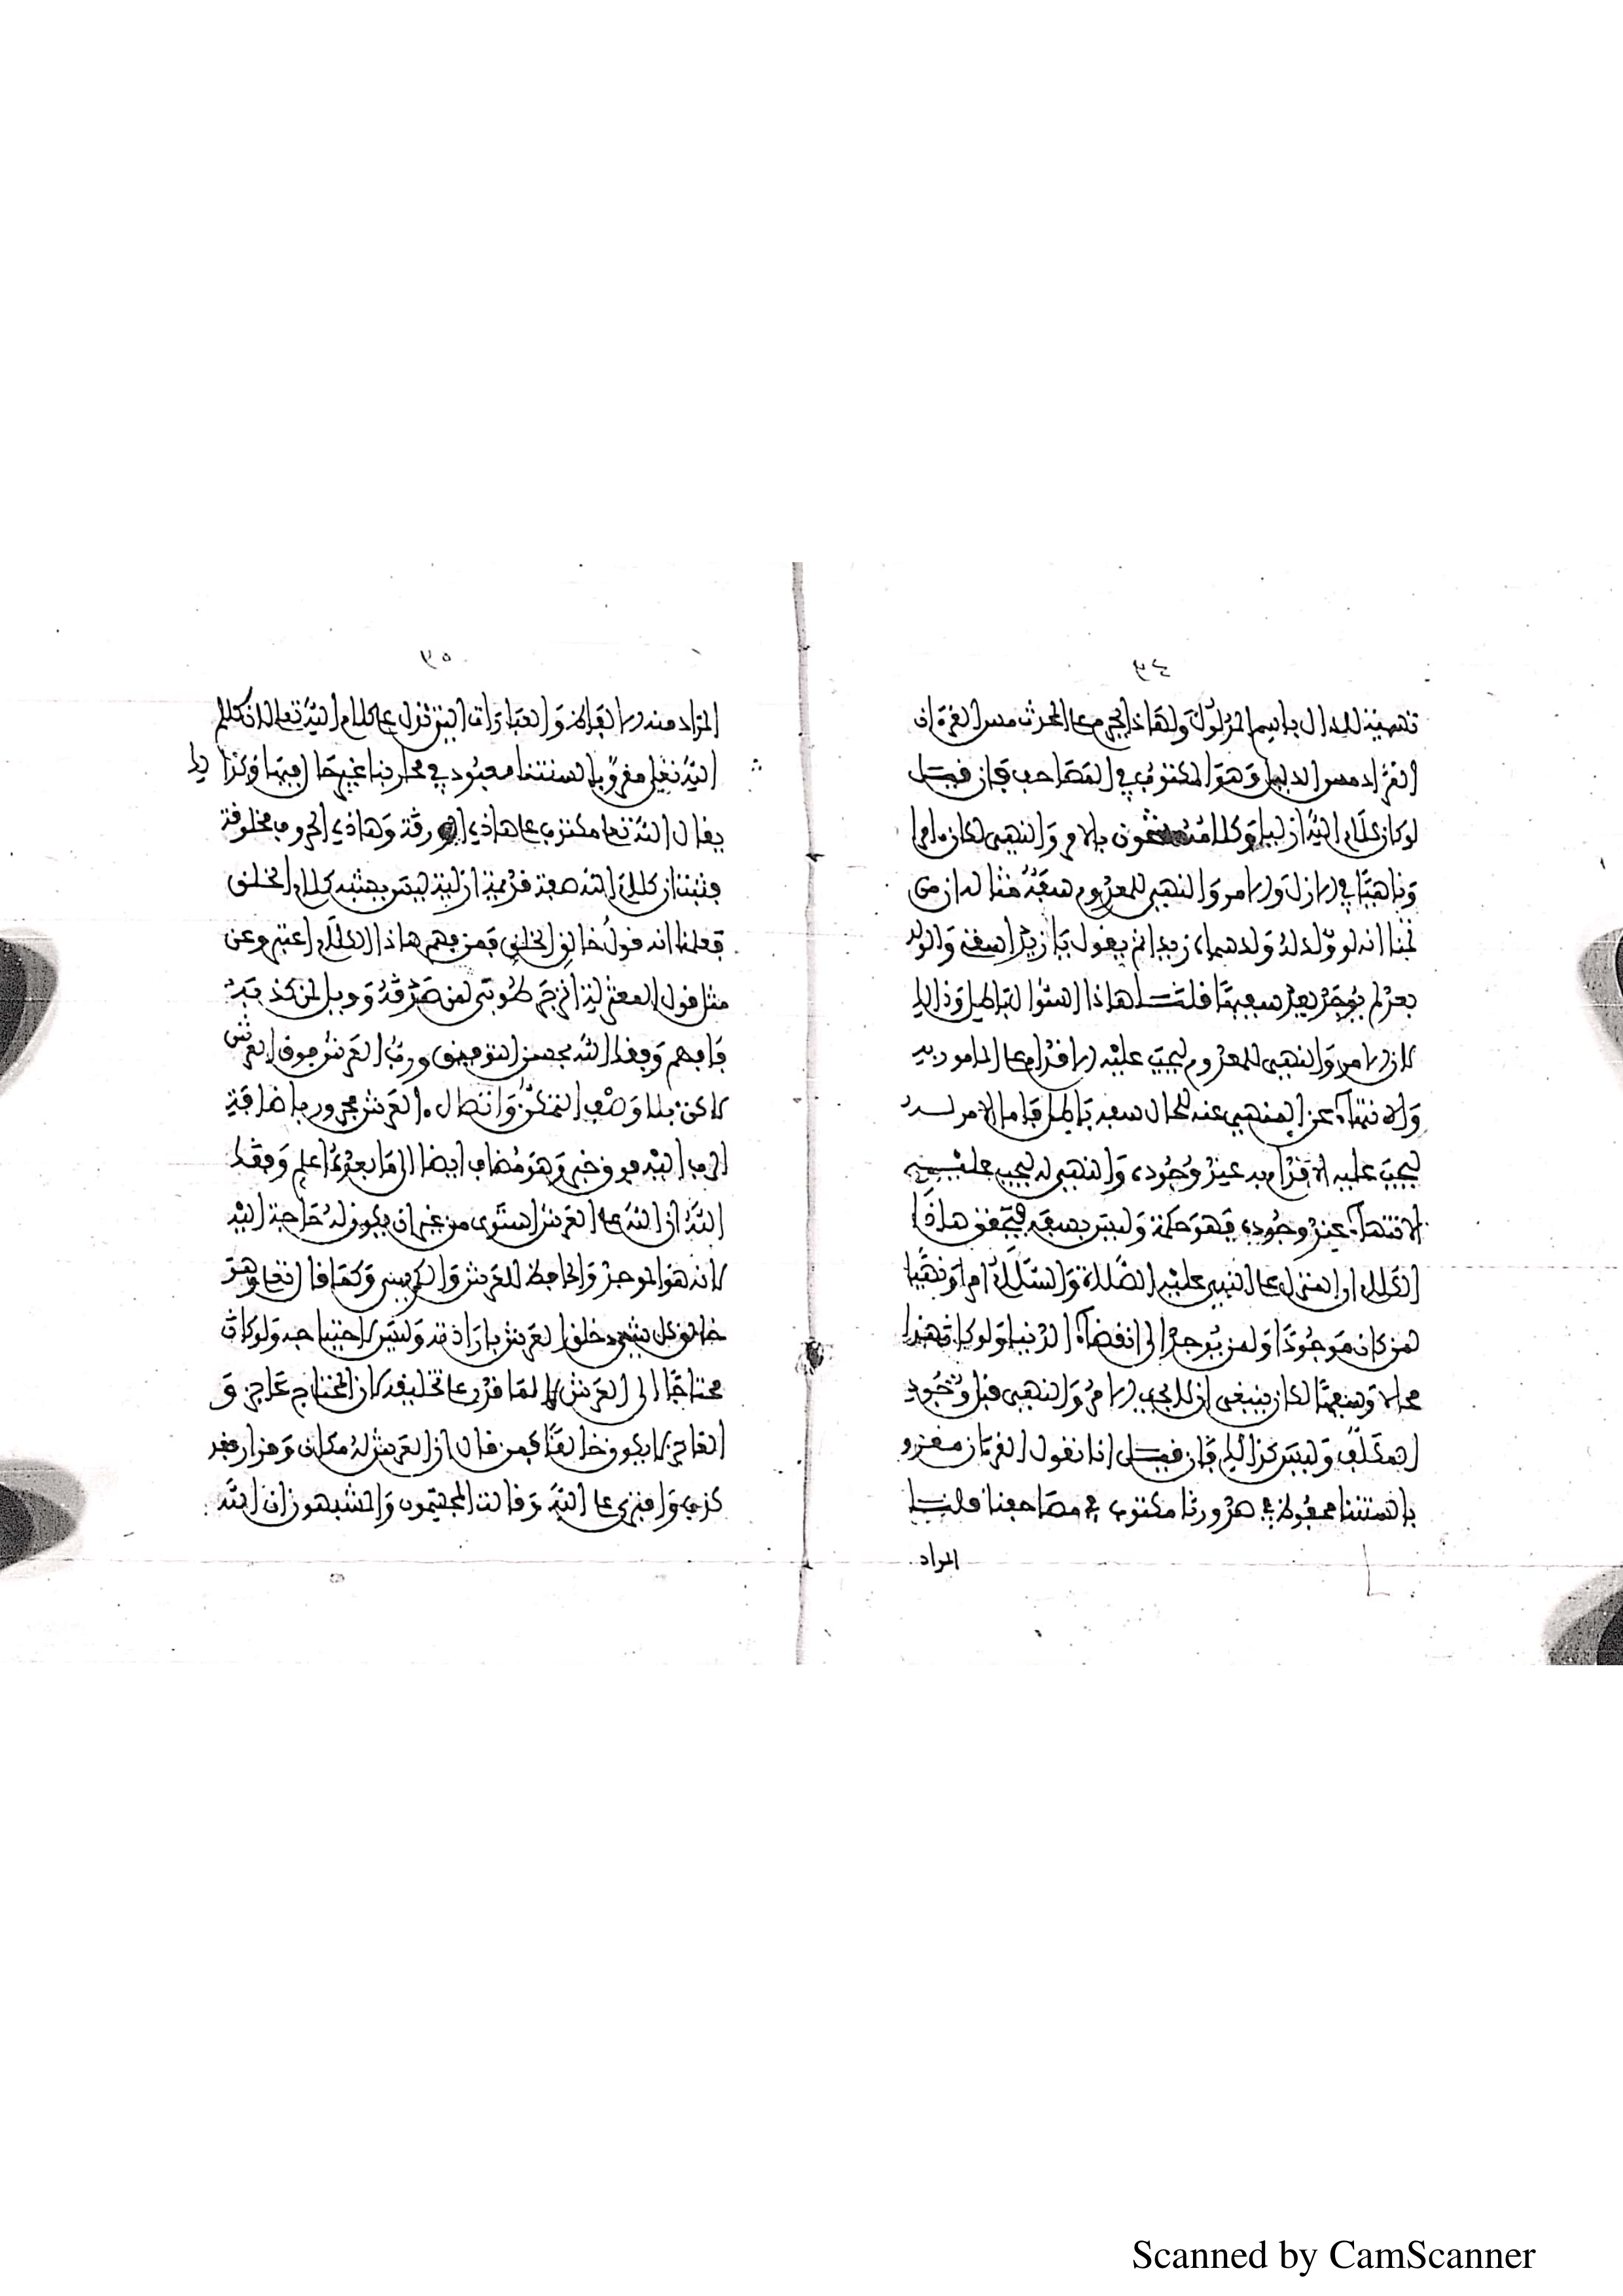 ٣٤
تسمية للدال باسم المدلول ولهاذا يجرم على المحدث مس القرءان
لوكان كلام الله ازليا وكلامه بالامر والنهي لكان ءامرا
وناهيا في الازل والامر والنهي للمعدوم سفه مثاله ان من
تمنا انه لو ولد له ولد سماه زيدا ثم يقول يا زيد اسقنى والولد
بعد لم يوجد يعد سفيها قلت هاذا السؤال باطل وذالك
لان الامر والنهي للمعدوم ليجب عليه الاقدام على المامور به
والانتهاء عن المنهي عنه للحال سفه باطل فاما الامر له
ليجب عليه الاقدام به عند وجوده والنهي له ليجب عليه
الانتهاء عند وجوده فهو حكمة وليس بسفه هاذا
الكلام ان المنزل على النبي عليه الصلاة والسلام امرا ونهيا
لمن كان موجودا ولمن يوجد الى انقضاء الدنيا ولو كان هذا
محالا وسفها لكان ينبغي ان لا يجب الامر والنهي قبل وجود
المكلف وليس كذالك فان قيل انا نقول القرءان مقرو
بالسنتنا محفوظ في صدورنا مكتوب في مصاحفنا قلنا
المراد
٣٥
المراد منه القراءة والعبارات التي تدل على كلام الله تعالى لان كلام
الله تعلى مقرو بالسنتنا معبود في محاربنا غير حال فيها وكذا لا
يقال الله تعلى مكتوب على هاذه الورقة وهاذه الحروف مخلوقة
فثبت ان كلام الله صفة قديمة ازلية ليس يشبه كلام الخلق
فعلمنا انه قول خالق الخلق فمن فهم هاذا الكلام اعتبر وعن
مثل قول المعتزلية انزجر طوبى لمن صدقه وويل لمن كذبه
فافهم وفقك الله بحسن التوفيق ورب العرش فوق العرش
لاكن بلا وصف التمكن واتصال العرش مجرور باضافة
الرب اليه فوق خبر وهو مضاف ايضا الى ما بعده اعلم وفقك
الله ان الله على العرش استوى من غير ان يكون له حاجة اليه
لانه هو الموجد والحافظ للعرش والكرسي وكما قال تعلى وهو
خالق كل شيء خلق العرش بارادته وليس لاحتياجه ولو كان
محتاجا الى العرش لما قدر على تخليقه لان المحتاج عاجز و
العاجز لا يكون خالقا فمن قال ان العرش له مكان وقرار فقد
كذب وافترى على الله وقالت المجسمون والمشبهون ان الله
Scanned by CamScanner